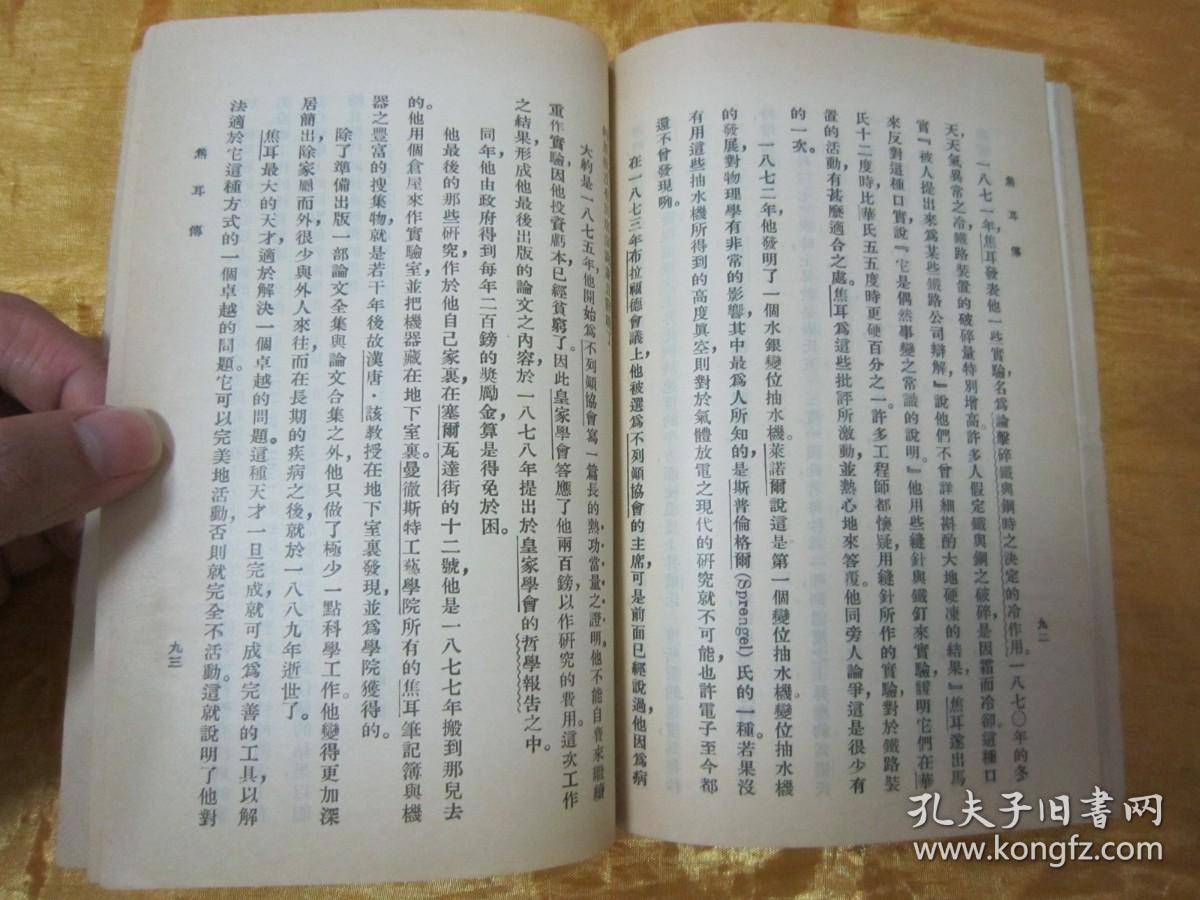 焦耳傳
九二
一八七一年，焦耳發表他一些實驗，名爲論擊碎鐵與鋼時之決定的冷作用。一八七〇年的冬
天天氣異常之冷，鐵路裝置的破碎量特別增高。許多人假定鐵與鋼之破碎，是因霜而冷卻。這種口
實『被人提出來爲某些鐵路公司辯解』說他們不曾詳細斟酌大地硬凍的結果』焦耳遂出馬
來反對這種口實，說『它是偶然事變之常識的說明』他用些縫針與鐵釘來實驗，證明它們在華
氏十二度時，比華氏五五度時更硬百分之一。許多工程師都懷疑用縫針所作的實驗，對於鐵路裝
置的活動有甚麽適合之處。焦耳爲這些批評所激動，並熱心地來答覆他同旁人論爭，這是很少有
的一次。
一八七二年，他發明了一個水銀變位抽水機。萊諾爾說這是第一個變位抽水機。變位抽水機
的發展，對物理學有非常的影響，其中最爲人所知的，是斯普倫格爾(Sprengel)氏的一種。若果沒
有用這些抽水機所得到的高度眞空，則對於氣體放電之現代的研究就不可能，也許電子至今都
還不曾發現咧。
在一八七三年布拉福德會議上，他被選爲不列顛協會的主席，可是前面已經說過，他因爲病
大約是一八七五年，他開始爲不列顛協會寫一篇長的熱功當量之證明。他不能自費來繼續
重作實驗，因他投資虧本，已經貧窮了。因此皇家學會答應了他兩百鎊，以作研究的費用。這次工作
之結果，形成他最後出版的論文之內容，於一八七八年提出於皇家學會的哲學報告之中。
同年他由政府得到每年二百鎊的獎勵金，算是得免於困。
他最後的那些研究，作於他自己家裏，在塞爾瓦達街的十二號，他是一八七七年搬到那兒去
的。他用個倉屋來作實驗室，並把機器藏在地下室裏。曼徹斯特工藝學院所有的焦耳筆記簿與機
器之豐富的搜集物，就是若干年後故漢唐·該教授在地下室裏發現，並爲學院獲得的。
除了準備出版一部論文全集與論文合集之外，他只做了極少一點科學工作。他變得更加深
居簡出，除家屬而外，很少與外人來往，而在長期的疾病之後，就於一八八九年逝世了。
焦耳最大的天才適於解決一個卓越的問題。這種天才一旦完成，就可成爲完善的工具，以解
法適於它這種方式的一個卓越的問題。它可以完美地活動，否則就完全不活動。這就說明了他對
焦耳傳
九三
孔夫子旧書网
www.kongfz.com